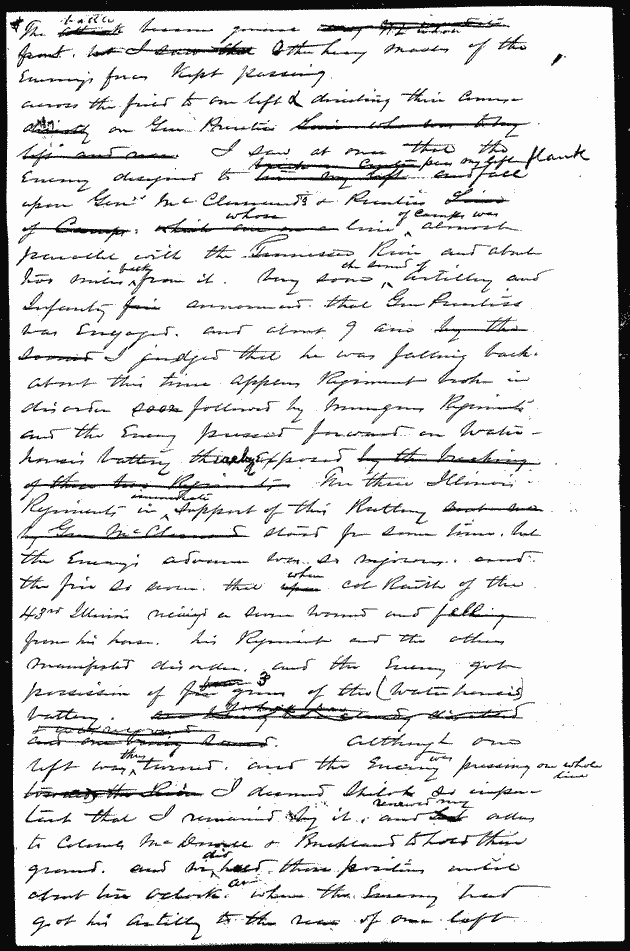 The battle became general along the whole
front. but I saw that & the heavy masses of the
Enemys forces kept passing
across the field to our left & directing their course
directly on Genl Prentiss
left and rear. I saw at once that the
Enemy designed to turn my left pass my left flank and fall
upon Genls McClernand's & Prentiss Line
of Camps. whose line of camps was almost
parallel with the Tennessee River and about
two miles back from it. Very soon the sound of artillery and
Infantry fire announced that Gen Prentiss
was Engaged. and about 9 am by the
sound I judged that he was falling back.
about this time Applers Regiment broke in
disorder soon followed by Mungens Regiment
and the Enemy pressed forward on Water-
houses battery thereby Exposed by the breaking
of these two Regiments. The three Illinois
Regiments in immediate support of this Battery
by Gen McClernand stood for some time. but
the Enemys advance was so vigorous. and
the fire so severe. that when upon Col Raith of the
43rd Illinois received a severe wound and falling
from his horse. his Regiment and the others
manifested disorder. and the Enemy got
possession of 3 guns of this (Waterhouse's)
battery.
Although our
left was thus turned. and the Enemy was pressing our whole line
towards the River I deemed Shiloh so impor-
tant that I remained by it. and renewed my orders
to Colonels McDowell & Buckland to hold their
ground. and we did hold these positions until
about ten oclock am. when the Enemy had
got his Artillery to the rear of our left